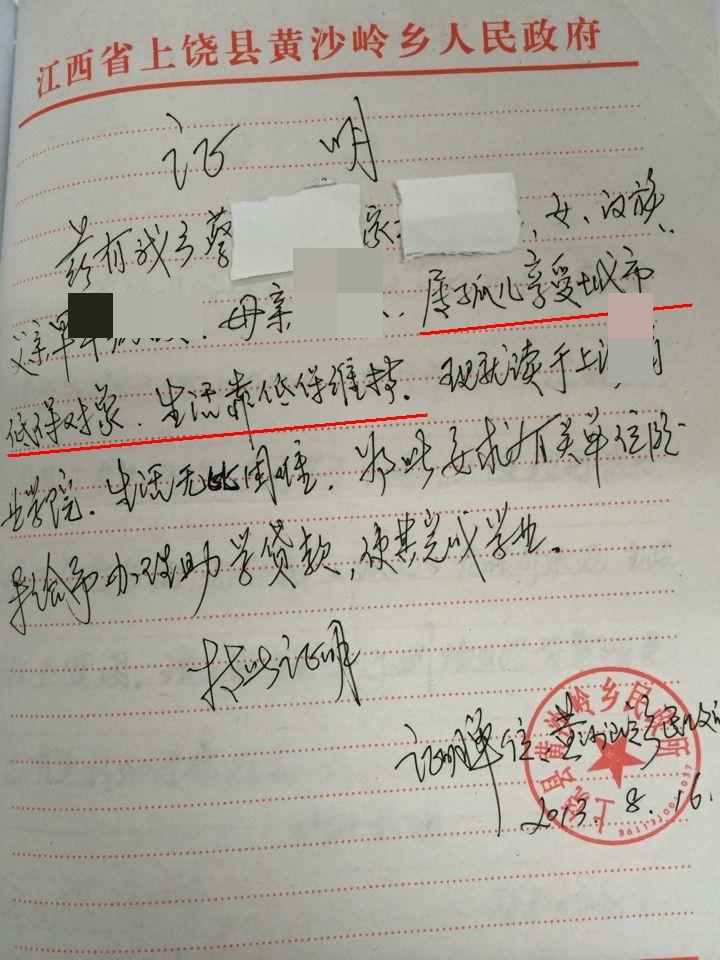 江西省上饶县黄沙岭乡人民政府
证 明
兹有我乡蔡 家 ,女、汉族、
母亲 属于孤儿享受城市
低保对象.生活靠低保维持.现就读于上
业学院.生活无比困难.为此要求有关单位
给予办理助学贷款,使其完成学业。
特此证明
证明单位:黄沙岭乡民政所
2013.8.16
上饶县黄沙岭乡民政所